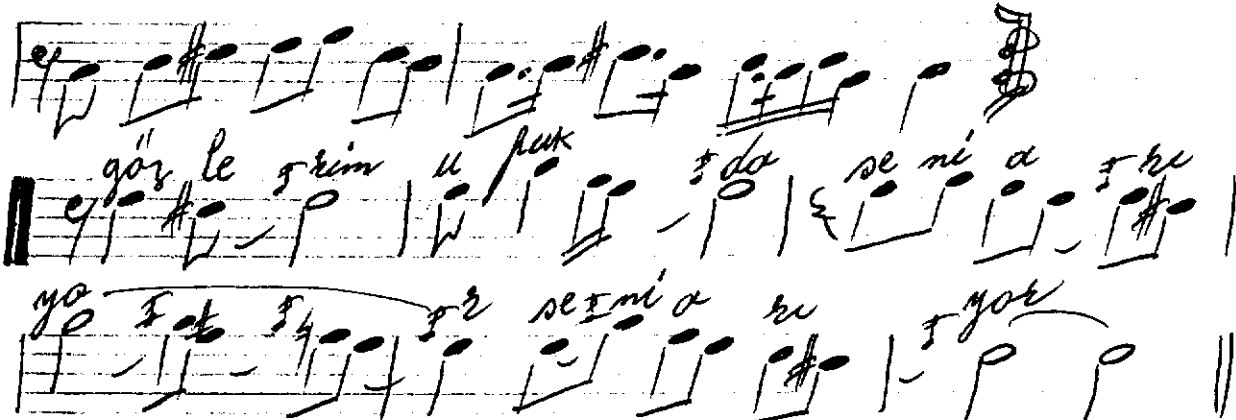 göz le rim u fuk da se ni a rı
yo r se ni a rı yor